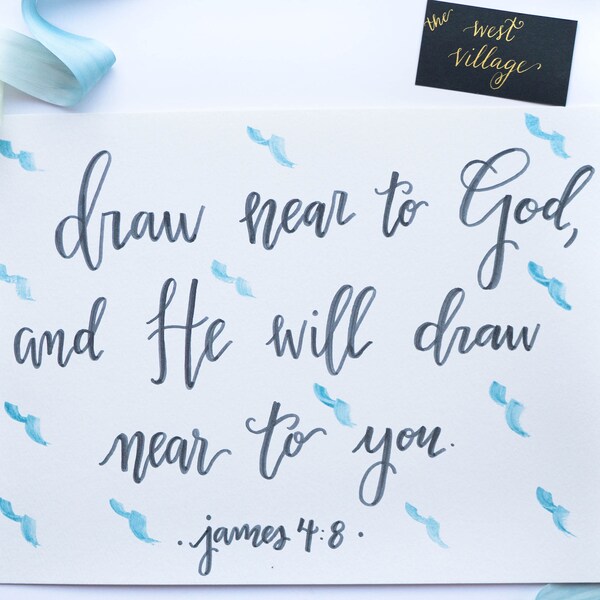 the
west
village
draw near to God,
and He will draw
near to you.
. james 4:8 .